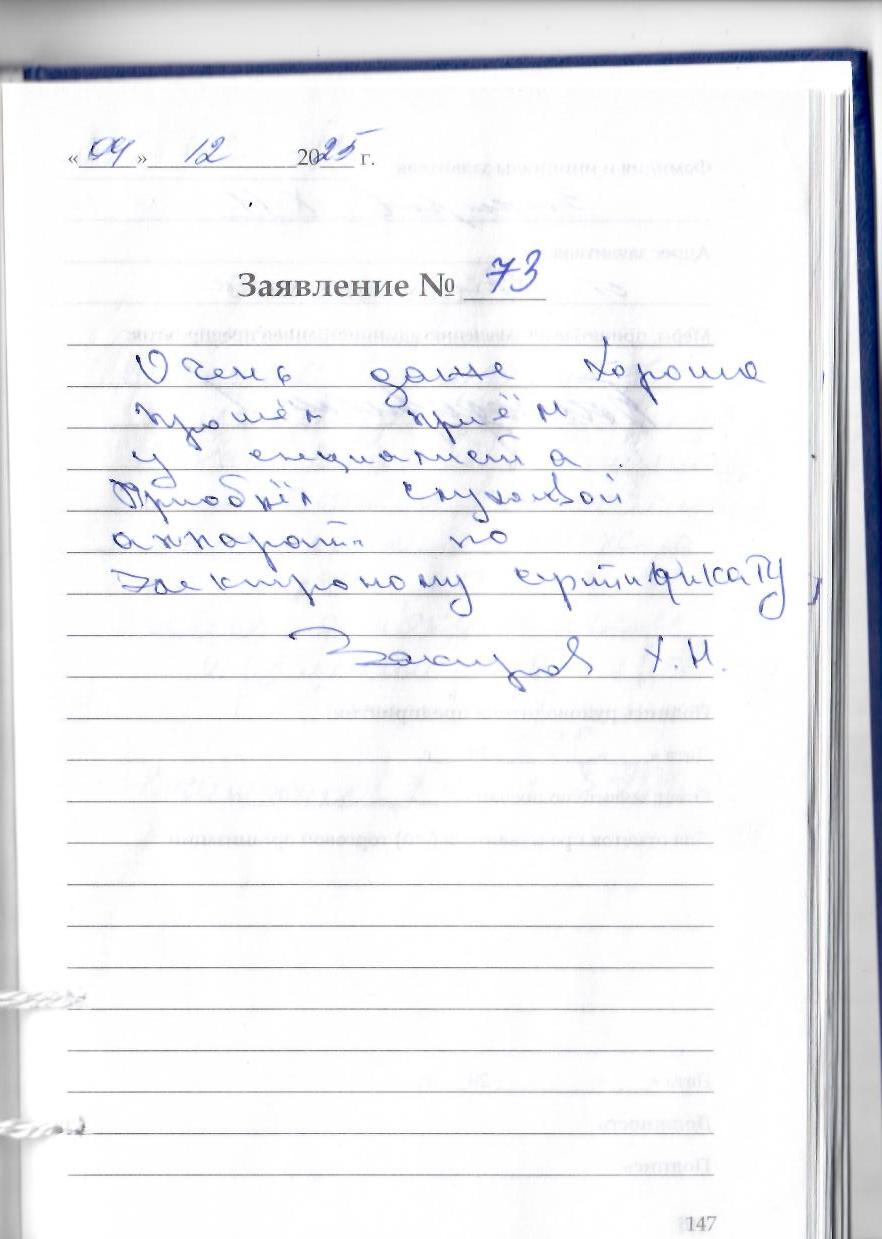 «09» 12 2025 г.
Заявление № 73
Очень даже хорошо
прошёл приём
у специалиста.
Приобрёл слуховой
аппарат по
электроному сертификату
Закиров Х.Н.
147